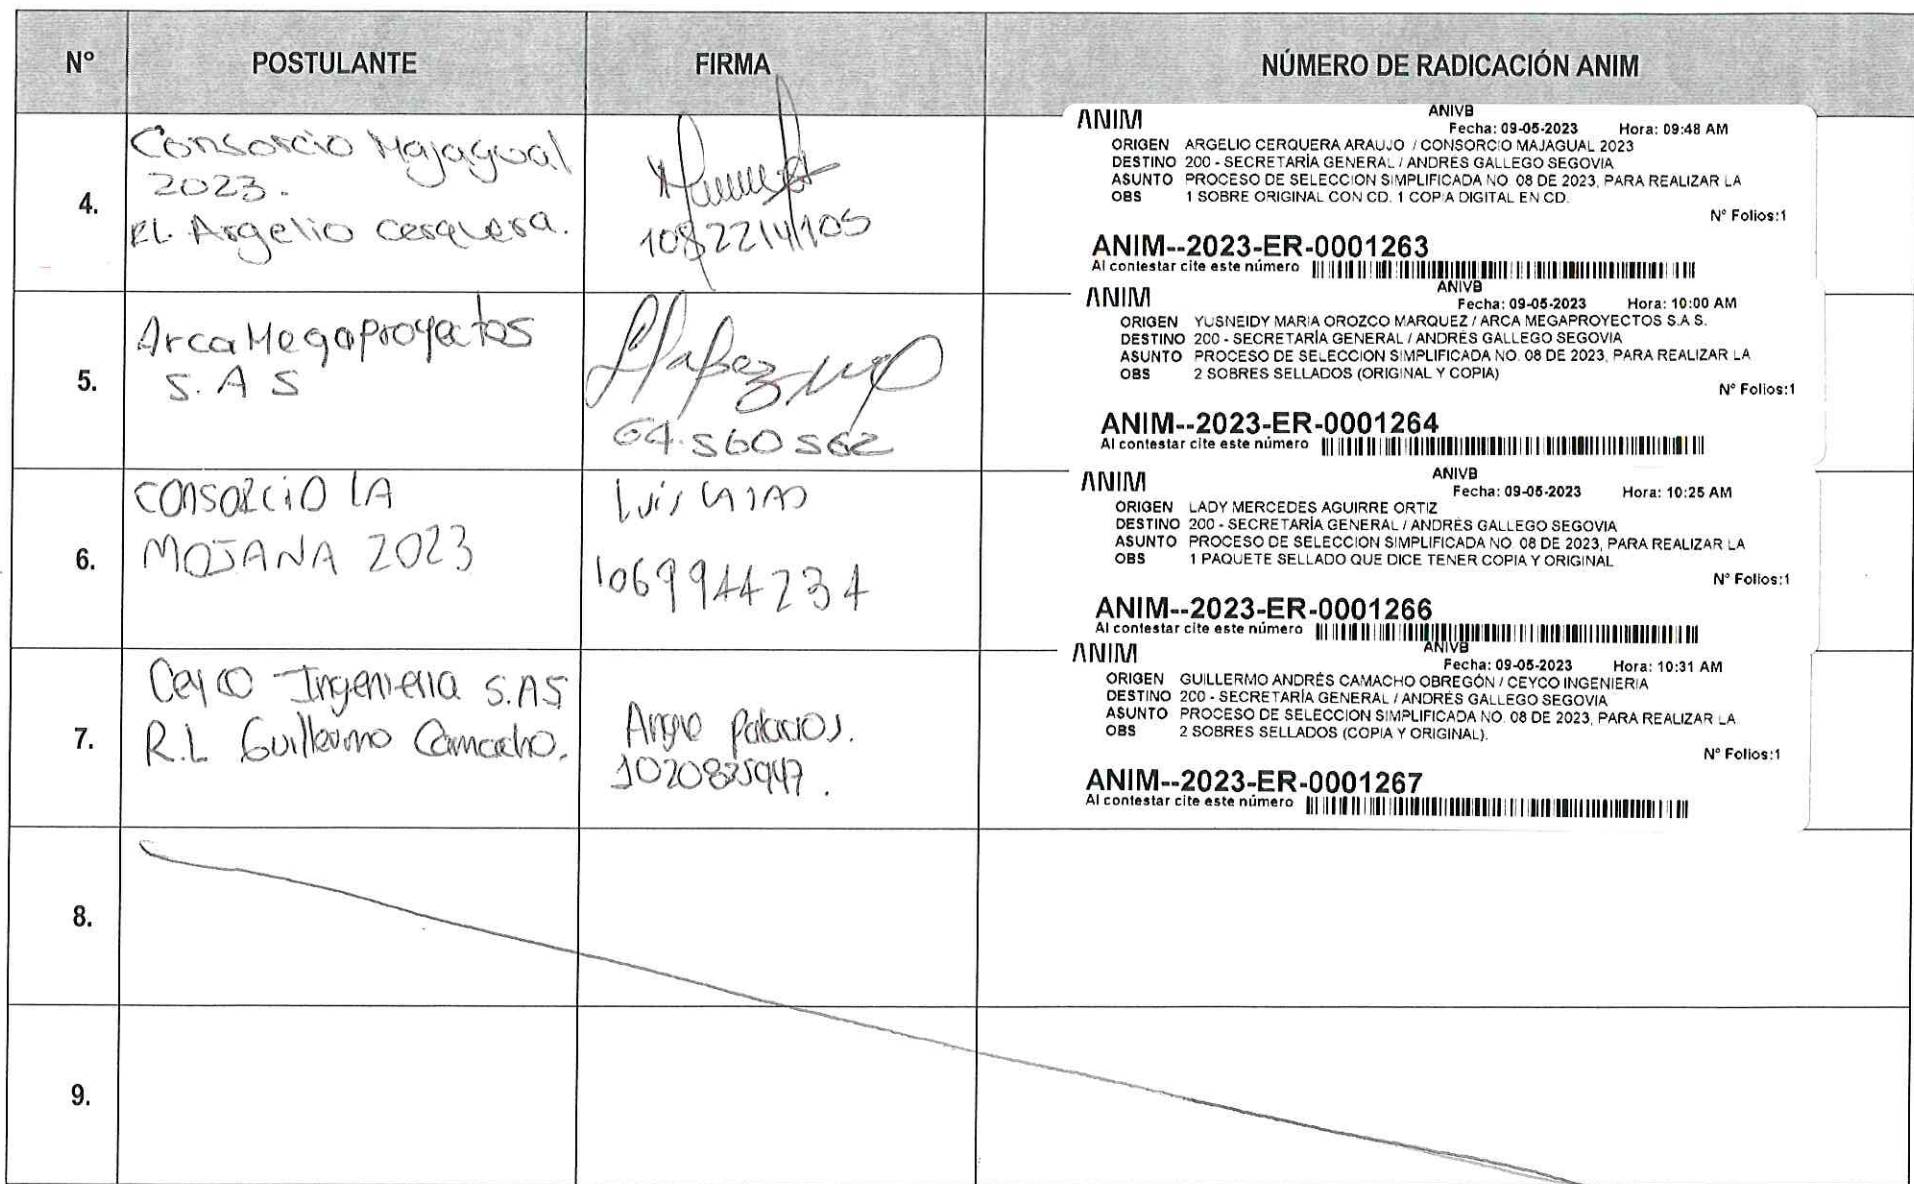 N° POSTULANTE FIRMA NÚMERO DE RADICACIÓN ANIM
4.
Consorcio Majagual
2023.
RL. Argelio cerquera.
1082214105
ANIM ANIVB
Fecha: 09-05-2023 Hora: 09:48 AM
ORIGEN ARGELIO CERQUERA ARAUJO / CONSORCIO MAJAGUAL 2023
DESTINO 200 - SECRETARÍA GENERAL / ANDRÉS GALLEGO SEGOVIA
ASUNTO PROCESO DE SELECCION SIMPLIFICADA NO. 08 DE 2023, PARA REALIZAR LA
OBS 1 SOBRE ORIGINAL CON CD. 1 COPIA DIGITAL EN CD.
N° Folios:1
ANIM--2023-ER-0001263
Al contestar cite este número
5.
Arca Megaproyectos
S. A S
64.560562
ANIM ANIVB
Fecha: 09-05-2023 Hora: 10:00 AM
ORIGEN YUSNEIDY MARIA OROZCO MARQUEZ / ARCA MEGAPROYECTOS S.A.S.
DESTINO 200 - SECRETARÍA GENERAL / ANDRÉS GALLEGO SEGOVIA
ASUNTO PROCESO DE SELECCION SIMPLIFICADA NO. 08 DE 2023, PARA REALIZAR LA
OBS 2 SOBRES SELLADOS (ORIGINAL Y COPIA)
N° Folios:1
ANIM--2023-ER-0001264
Al contestar cite este número
6.
CONSORCIO LA
MOJANA 2023
Luis
1069944234
ANIM ANIVB
Fecha: 09-05-2023 Hora: 10:25 AM
ORIGEN LADY MERCEDES AGUIRRE ORTIZ
DESTINO 200 - SECRETARÍA GENERAL / ANDRÉS GALLEGO SEGOVIA
ASUNTO PROCESO DE SELECCION SIMPLIFICADA NO. 08 DE 2023, PARA REALIZAR LA
OBS 1 PAQUETE SELLADO QUE DICE TENER COPIA Y ORIGINAL
N° Folios:1
ANIM--2023-ER-0001266
Al contestar cite este número
7.
Ceyco Ingenieria S.AS
R.L Guillermo Camacho.
Angie Palacios.
1020825947.
ANIM ANIVB
Fecha: 09-05-2023 Hora: 10:31 AM
ORIGEN GUILLERMO ANDRÉS CAMACHO OBREGÓN / CEYCO INGENIERIA
DESTINO 200 - SECRETARÍA GENERAL / ANDRÉS GALLEGO SEGOVIA
ASUNTO PROCESO DE SELECCION SIMPLIFICADA NO. 08 DE 2023, PARA REALIZAR LA
OBS 2 SOBRES SELLADOS (COPIA Y ORIGINAL).
N° Folios:1
ANIM--2023-ER-0001267
Al contestar cite este número
8.
9.